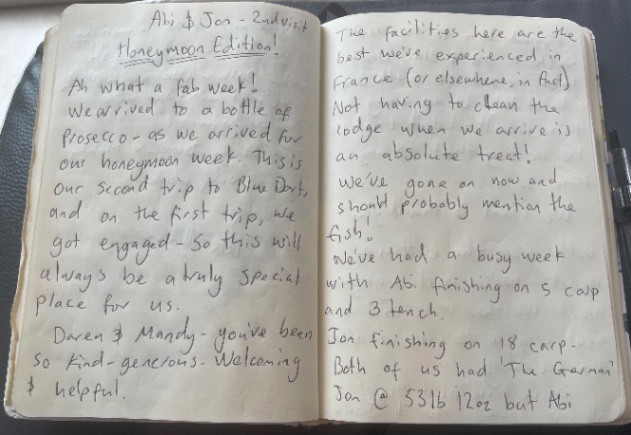 Abi & Jon - 2nd visit
Honeymoon Edition!
Ah what a fab week!
We arrived to a bottle of
Prosecco - as we arrived for
our honeymoon week. This is
our second trip to Blue Dort,
and on the first trip, we
got engaged - So this will
always be a truly special
place for us.
Daren & Mandy - you've been
so kind - generous - Welcoming
& helpful.
The facilities here are the
best we've experienced in
France (or elsewhere, in fact)
Not having to clean the
lodge when we arrive is
an absolute treat!
We've gone on now and
should probably mention the
fish!
We've had a busy week
with Abi finishing on 5 carp
and 3 tench.
Jon finishing on 18 carp -
Both of us had 'The German'
Jon @ 53lb 12oz but Abi